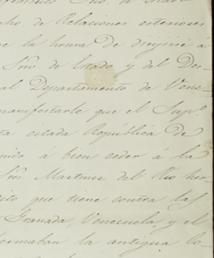 cho de Relaciones exteriores
e la honra de dirijirse á
Sõr. de Estado y del Des
al Departamento de Vene
manifestarle que el Sup.º
ta citada República de
nido á bien ceder á la
Sõr. Martinez del Rio her
dito que tiene contra las
Granada, Venezuela y el
formaban la antigua Co